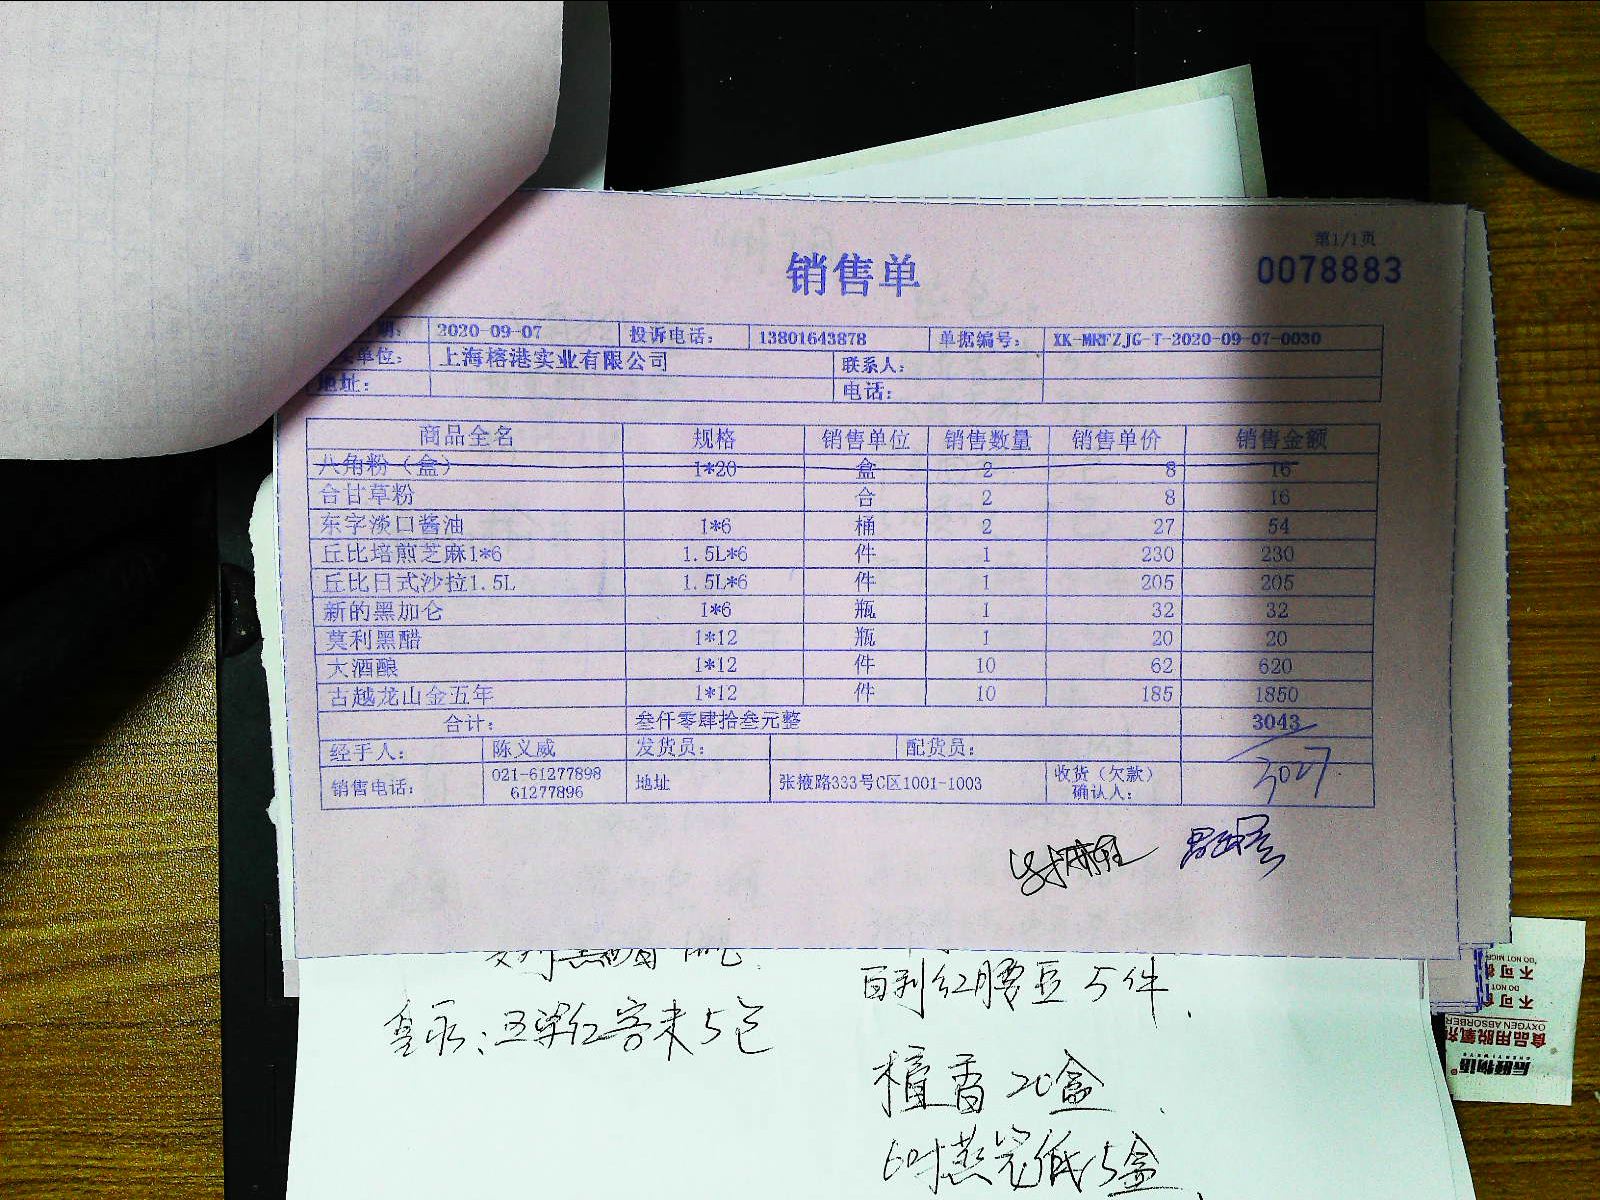 第1/1页
销售单
0078883
期： 2020-09-07 投诉电话： 13801643878 单据编号： XK-MRFZJG-T-2020-09-07-0030
单位： 上海榕港实业有限公司 联系人：
地址： 电话：
商品全名 规格 销售单位 销售数量 销售单价 销售金额
八角粉（盒） 1*20 盒 2 8 16
合甘草粉 合 2 8 16
东字淡口酱油 1*6 桶 2 27 54
丘比培煎芝麻1*6 1.5L*6 件 1 230 230
丘比日式沙拉1.5L 1.5L*6 件 1 205 205
新的黑加仑 1*6 瓶 1 32 32
莫利黑醋 1*12 瓶 1 20 20
大酒酿 1*12 件 10 62 620
古越龙山金五年 1*12 件 10 185 1850
合计： 叁仟零肆拾叁元整 3043
经手人： 陈义威 发货员： 配货员：
3027
销售电话： 021-61277898 61277896 地址 张掖路333号C区1001-1003 收货（欠款）确认人：
百利红腰豆5件
5包
檀香20盒
6吋蒸笼纸15盒
不可
DO NOT
食品用脱氧剂
OXYGEN ABSORBER